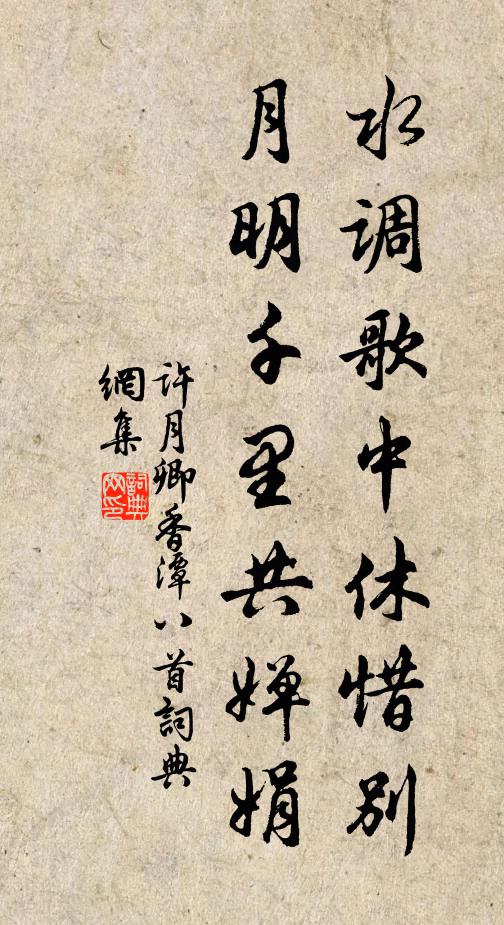 水调歌中休惜别
月明千里共婵娟
许月卿香潭八首詞典
網集
詞典網印